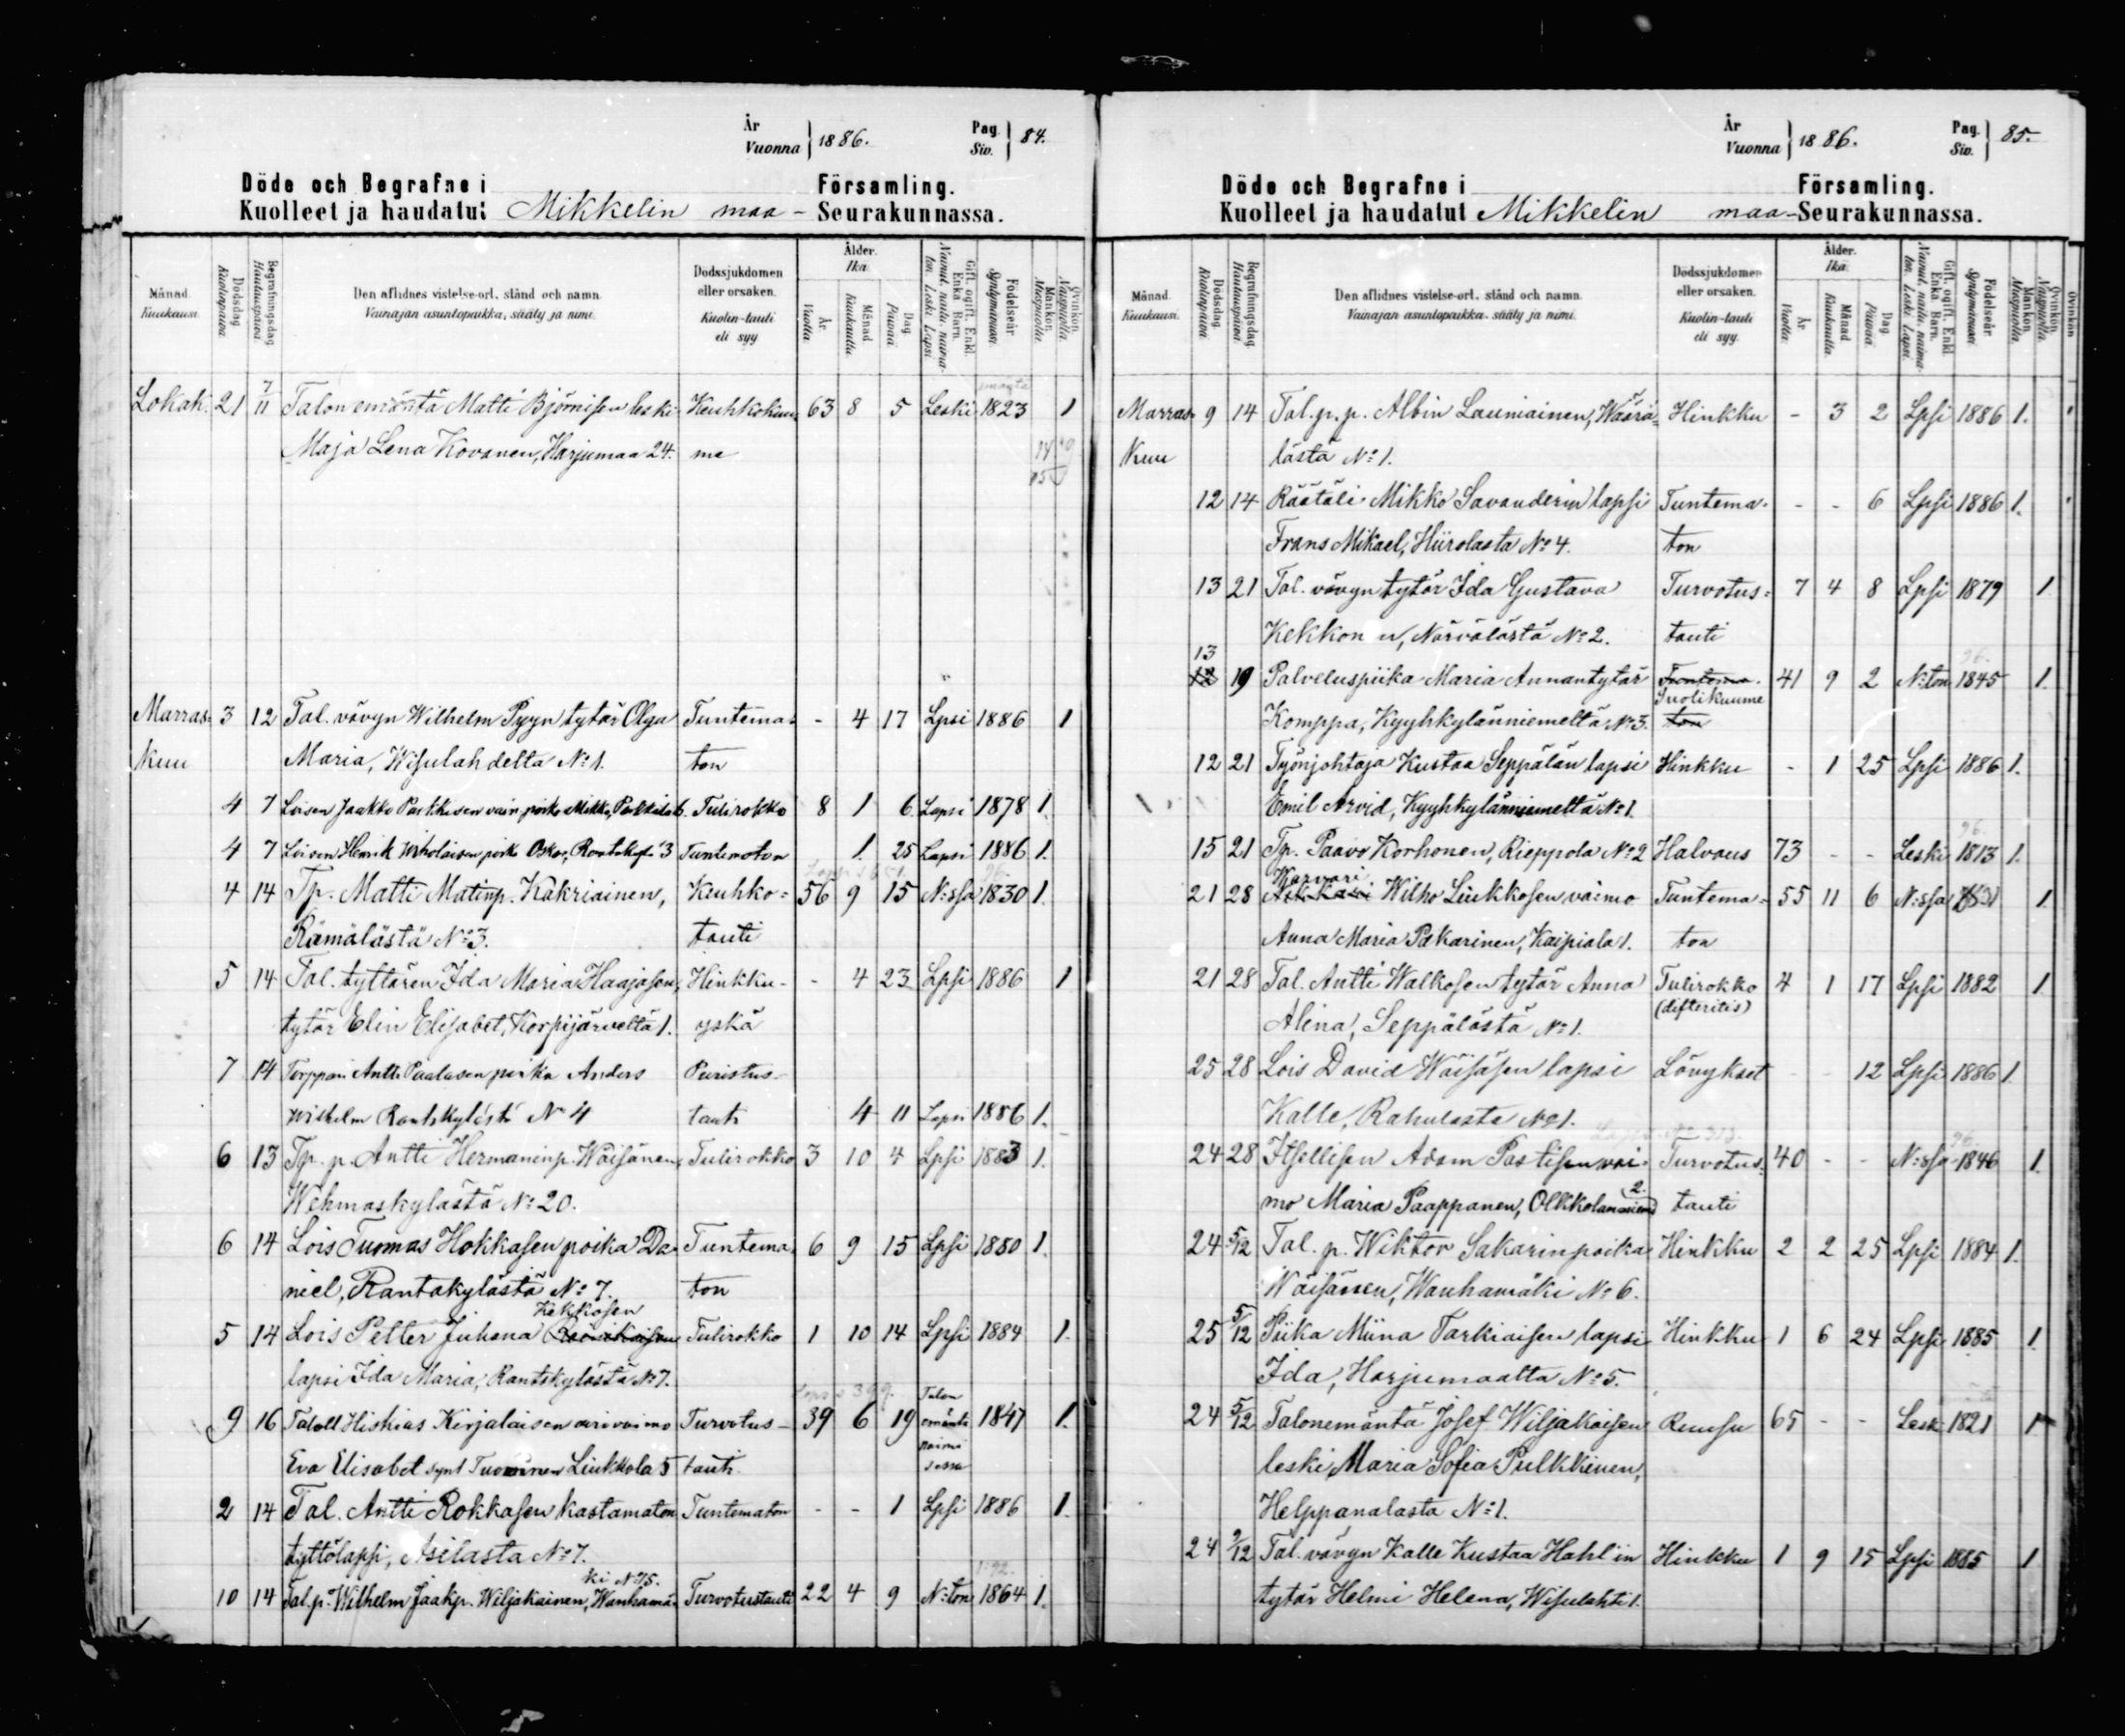 År
Vuonna 1886. Pag. Siv. 84.
Döde och Begrafne i Församling.
Kuolleet ja haudatut Mikkelin maa- Seurakunnassa.
Månad. Kuukausi. Dödsdag. Kuolinpäivä. Begrafningsdag. Hautauspäivä. Den aflidnes vistelse-ort, stånd och namn. Vainajan asuntopaikka, sääty ja nimi. Dödssjukdomen eller orsaken. Kuolin-tauti eli syy Ålder. Ikä. År. Vuotta. Månad Kuukautta. Dag. Päivää. Gift, ogift, Enkl. Enka. Barn. Nainut, naitu, naimaton. Leski. Lapsi. Födelseår. Syntymävuosi. Mankön. Miespuolia. Qvinkön. Naispuolia.
Lokak. 21 7/11 Talon emäntä Matti Björnisen leski Keuhkokuu- 63 8 5 Leski 1823 1
Maja Lena Kovanen, Harjumaa 24. me
Marras- 3 12 Tal. vävyn Wilhelm Pyyn tytär Olga Tuntema- - 4 17 Lpsi 1886 1
kuu Maria, Wisulahdelta No 1. ton
4 7 Loisen Jaakko Parkkisen vain. poika Mikko, Parkkila 6. Tulirokko 8 1 6 Lapsi 1878 1.
4 7 Loisen Henrik Wiholaisen poika Oskar, Rantakylä 3 Tuntematon 1. 25 Lapsi 1886 1.
4 14 Tp. Matti Matinp. Kakriainen, Keuhko- 56 9 15 N:ssa 1830 1.
Rämälästä No 3. tauti
5 14 Tal. tyttären Ida Maria Haajasen, Hinkku- - 4 23 Lpsi 1886 1
tytär Elin Elisabet, Korpijärveltä 1. yskä
7 14 Torppari Antti Paalasen poika Anders Puristus-
Wilhelm Rantakylästä No 4 tauti 4 11 Lapsi 1886 1.
6 13 Tp. p. Antti Hermaninp. Wäisänen, Tulirokko 3 10 4 Lpsi 1883 1.
Wehmaskylästä No 20.
6 14 Lois Tuomas Hokkasen poika Da- Tuntema- 6 9 15 Lpsi 1880 1.
niel, Rantakylästä No 7. ton
Kekkosen
5 14 Lois Petter Juhana Tulirokko 1 10 14 Lpsi 1884 1.
lapsi Ida Maria, Rantakylästä No 7.
9 16 Taloll Hiskias Kirjalaisen avivaimo Turvotus- 39 6 19 Talon emäntä naimisessa 1847 1.
Eva Elisabet synt Tuominen Liukkola 5 tauti.
2 14 Tal. Antti Rokkasen kastamaton Tuntematon - - 1 Lpsi 1886 1.
tyttölapsi, Asilasta No 7.
ki No 15.
10 14 Tal. p. Wilhelm Jaakp. Wiljakainen, Wanhamä- Turvotustauti 22 4 9 N:ton 1864 1.
År
Vuonna 1886. Pag. Siv. 85.
Döde och Begrafne i Församling.
Kuolleet ja haudatut Mikkelin maa-Seurakunnassa.
Månad. Kuukausi. Dödsdag. Kuolinpäivä. Begrafningsdag. Hautauspäivä. Den aflidnes vistelse-ort, stånd och namn. Vainajan asuntopaikka, sääty ja nimi. Dödssjukdomen eller orsaken. Kuolin-tauti eli syy. Ålder. Ikä. År. Vuotta. Månad Kuukautta. Dag. Päivää. Gift, ogift, Enkl. Enka. Barn. Nainut, naitu, naimaton. Leski. Lapsi. Födelseår. Syntymävuosi. Mankön. Miespuolia. Qvinkön. Naispuolia.
Marras- 9 14 Tal. p. p. Albin Launiainen, Wäärä- Hinkku - 3 2 Lpsi 1886 1.
kuu lästä No 1.
12 14 Räätäli Mikko Savanderin lapsi Tuntema- - - 6 Lpsi 1886 1.
Frans Mikael, Hiirolasta No 4. ton
13 21 Tal. vävyn tytär Ida Gustava Turvotus- 7 4 8 Lpsi 1879 1
Kekkonen, Närvälästä No 2. tauti
13
12 19 Palveluspiika Maria Annantytär Tuntema- 41 9 2 N:ton 1845 1.
Suolikuume
Komppa, Kyyhkylänniemeltä No 3. ton
12 21 Työnjohtaja Kustaa Seppälän lapsi Hinkku - 1 25 Lpsi 1886 1.
Emil Arvid, Kyyhkylänniemeltä No 1.
15 21 Tp. Paavo Korhonen, Rieppola No 2 Halvaus 73 - - Leski 1813 1.
Karvari
21 28 Wilho Liukkosen vaimo Tuntema- 55 11 6 N:ssa 1831 1.
Anna Maria Pakarinen, Kaipiala 1. ton
21 28 Tal. Antti Walkosen tytär Anna Tulirokko 4 1 17 Lpsi 1882 1.
Alina, Seppälästä No 1. (difteritis)
25 28 Lois David Wäisäsen lapsi Lövykset - - 12 Lpsi 1886 1.
Kalle, Rahulasta No 1.
24 28 Itsellisen Adam Pastisen vai- Turvotus- 40 - - N:ssa 1846 1.
mo Maria Paappanen, Olkkolanniemi 2. tauti
24 5/12 Tal. p. Wiktor Sakarinpoika Hinkku 2 2 25 Lpsi 1884 1.
Wäisänen, Wanhamäki No 6.
25 5/12 Piika Miina Tarkiaisen lapsi Hinkku 1 6 24 Lpsi 1885 1.
Ida, Harjumaalta No 5.
24 5/12 Talonemäntä Josef Wiljakaisen Ruusu 65 - - Leski 1821 1
leski, Maria Sofia Pulkkinen,
Helppanalasta No 1.
24 9/12 Tal. vävyn Kalle Kustaa Hahl'in Hinkku 1 9 15 Lpsi 1885 1
tytär Helmi Helena, Wisulahti 1.